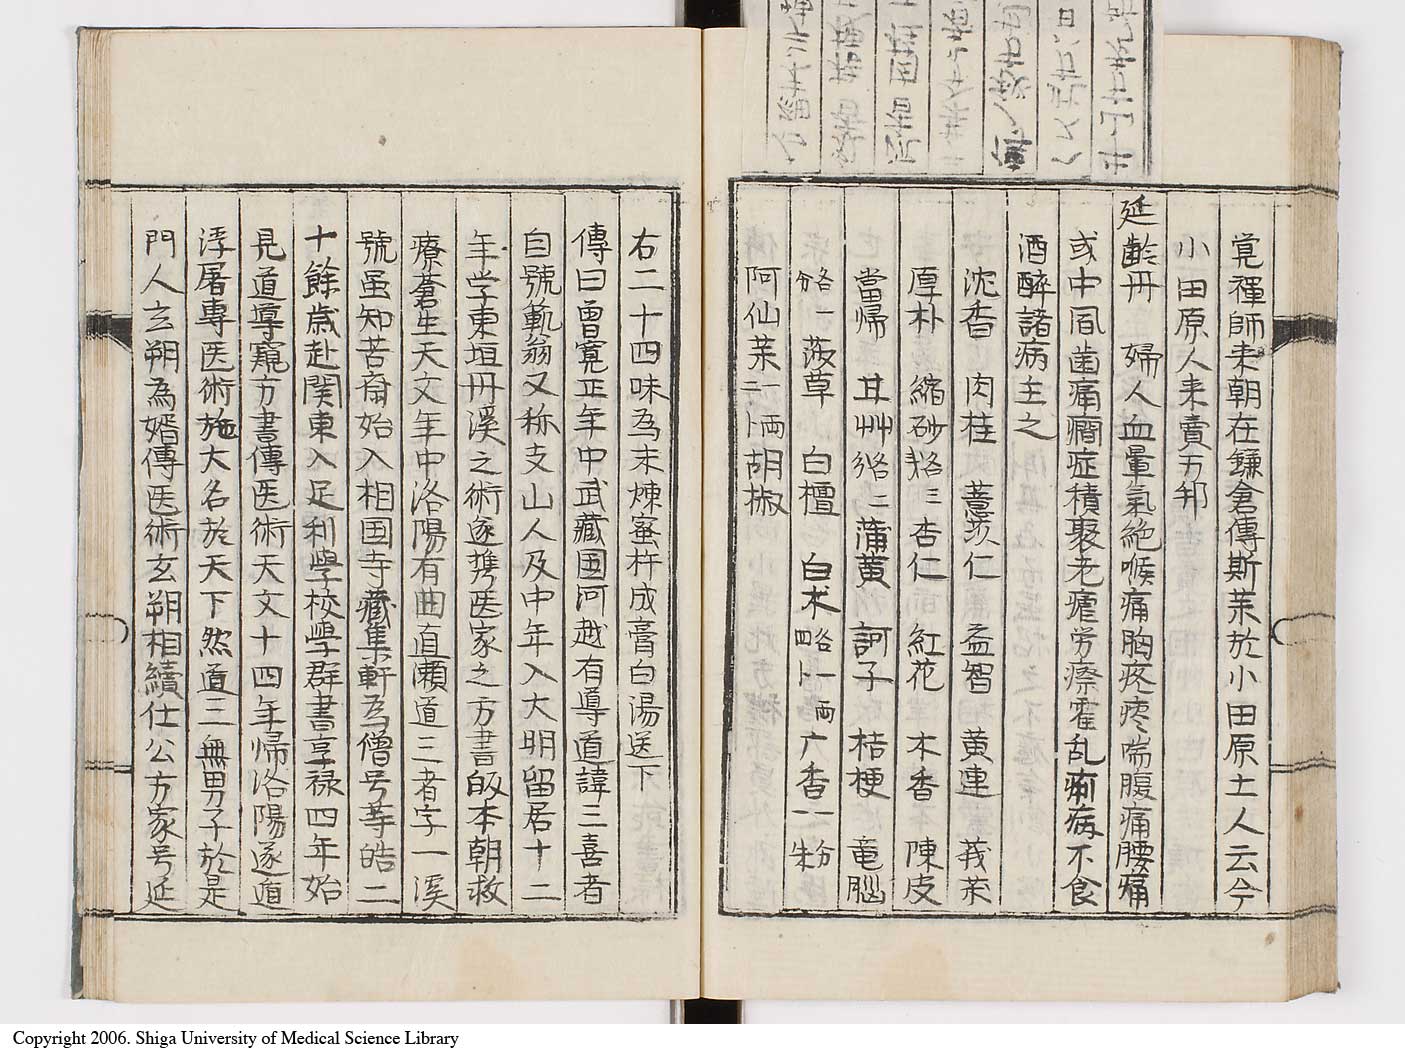 覚禅師来朝在鎌倉傳斯茱於小田原土人云今
小田原人来賣万邦
延齢丹 婦人血暈氣絶喉痛胸疼疼喘腹痛腰痛
或中風歯痛癇症積聚老瘧労瘵霍乱痢病不食
酒醉諸病主之
沈香 肉桂 薏苡仁 益智 黄連 莪茱
厚朴 縮砂 各三 杏仁 紅花 木香 陳皮
當帰 甘艸 各二 蒲黄 訶子 桔梗 竜脳
一 菝草 白檀 白朮 各一両 六香 一分
阿仙茱 一両 胡椒
右二十四味為末煉蜜杵成膏白湯送下
傳曰曽寛正年中武藏国河越有導道諱三喜者
自號範翁又称支山人及中年入大明留居十二
年学東垣丹溪之術遂携医家之方書皈本朝救
療蒼生天文年中洛陽有曲直瀬道三者字一溪
號虽知苦斎始入相国寺藏集軒為僧号等皓二
十餘歳赴関東入足利学校学群書享禄四年始
見道導窺方書傳医術天文十四年帰洛陽遂遁
浮屠専医術施大名於天下然道三無男子於是
門人玄朔為婿傳医術玄朔相續仕公方家号延
Copyright 2006. Shiga University of Medical Science Library